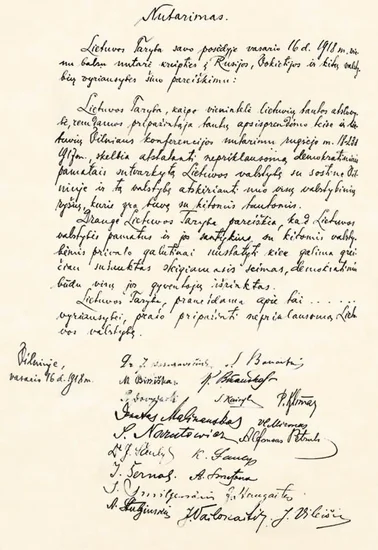 Nutarimas.
Lietuvos Taryba savo posėdyje vasario 16 d. 1918 m. vienu
balsu nutarė kreiptis į Rusijos, Vokietijos ir kitų valsty-
bių vyriausybes šiuo pareiškimu:
Lietuvos Taryba, kaipo vienintelė lietuvių tautos atstovy-
bė, remdamos pripažintąja tautų apsisprendimo teise ir lie-
tuvių Vilniaus konferencijos nutarimu rugsėjo m. 18-23 d.
1917 m., skelbia atstatanti nepriklausomą, demokratiniais
pamatais sutvarkytą Lietuvos valstybę su sostine Vil-
niuje ir tą valstybę atskirianti nuo visų valstybinių
ryšių, kurie yra buvę su kitomis tautomis.
Drauge Lietuvos Taryba pareiškia, kad Lietuvos
valstybės pamatus ir jos santykius su kitomis valsty-
bėmis privalo galutinai nustatyti kiek galima grei-
čiau sušauktas steigiamasis seimas, demokratiniu
būdu visų jos gyventojų išrinktas.
Lietuvos Taryba, pranešdama apie tai . . . . . .
vyriausybei, prašo pripažinti nepriklausomą Lietu-
vos valstybę.
Vilniuje,
vasario 16 d. 1918 m.
Dr. J. Basanavičius S. Banaitis
M. Biržiška K. Bizauskas
P. Dovydaitis S. Kairys P. Klimas
Donatas Malinauskas Vl. Mironas
S. Narutowicz Alfonsas Petrulis
Dr. J. Šaulys K. Šaulys
J. Šernas A. Smetona
J. Smilgevičius J. Staugaitis
A. Stulginskis J. Vailokaitis J. Vileišis